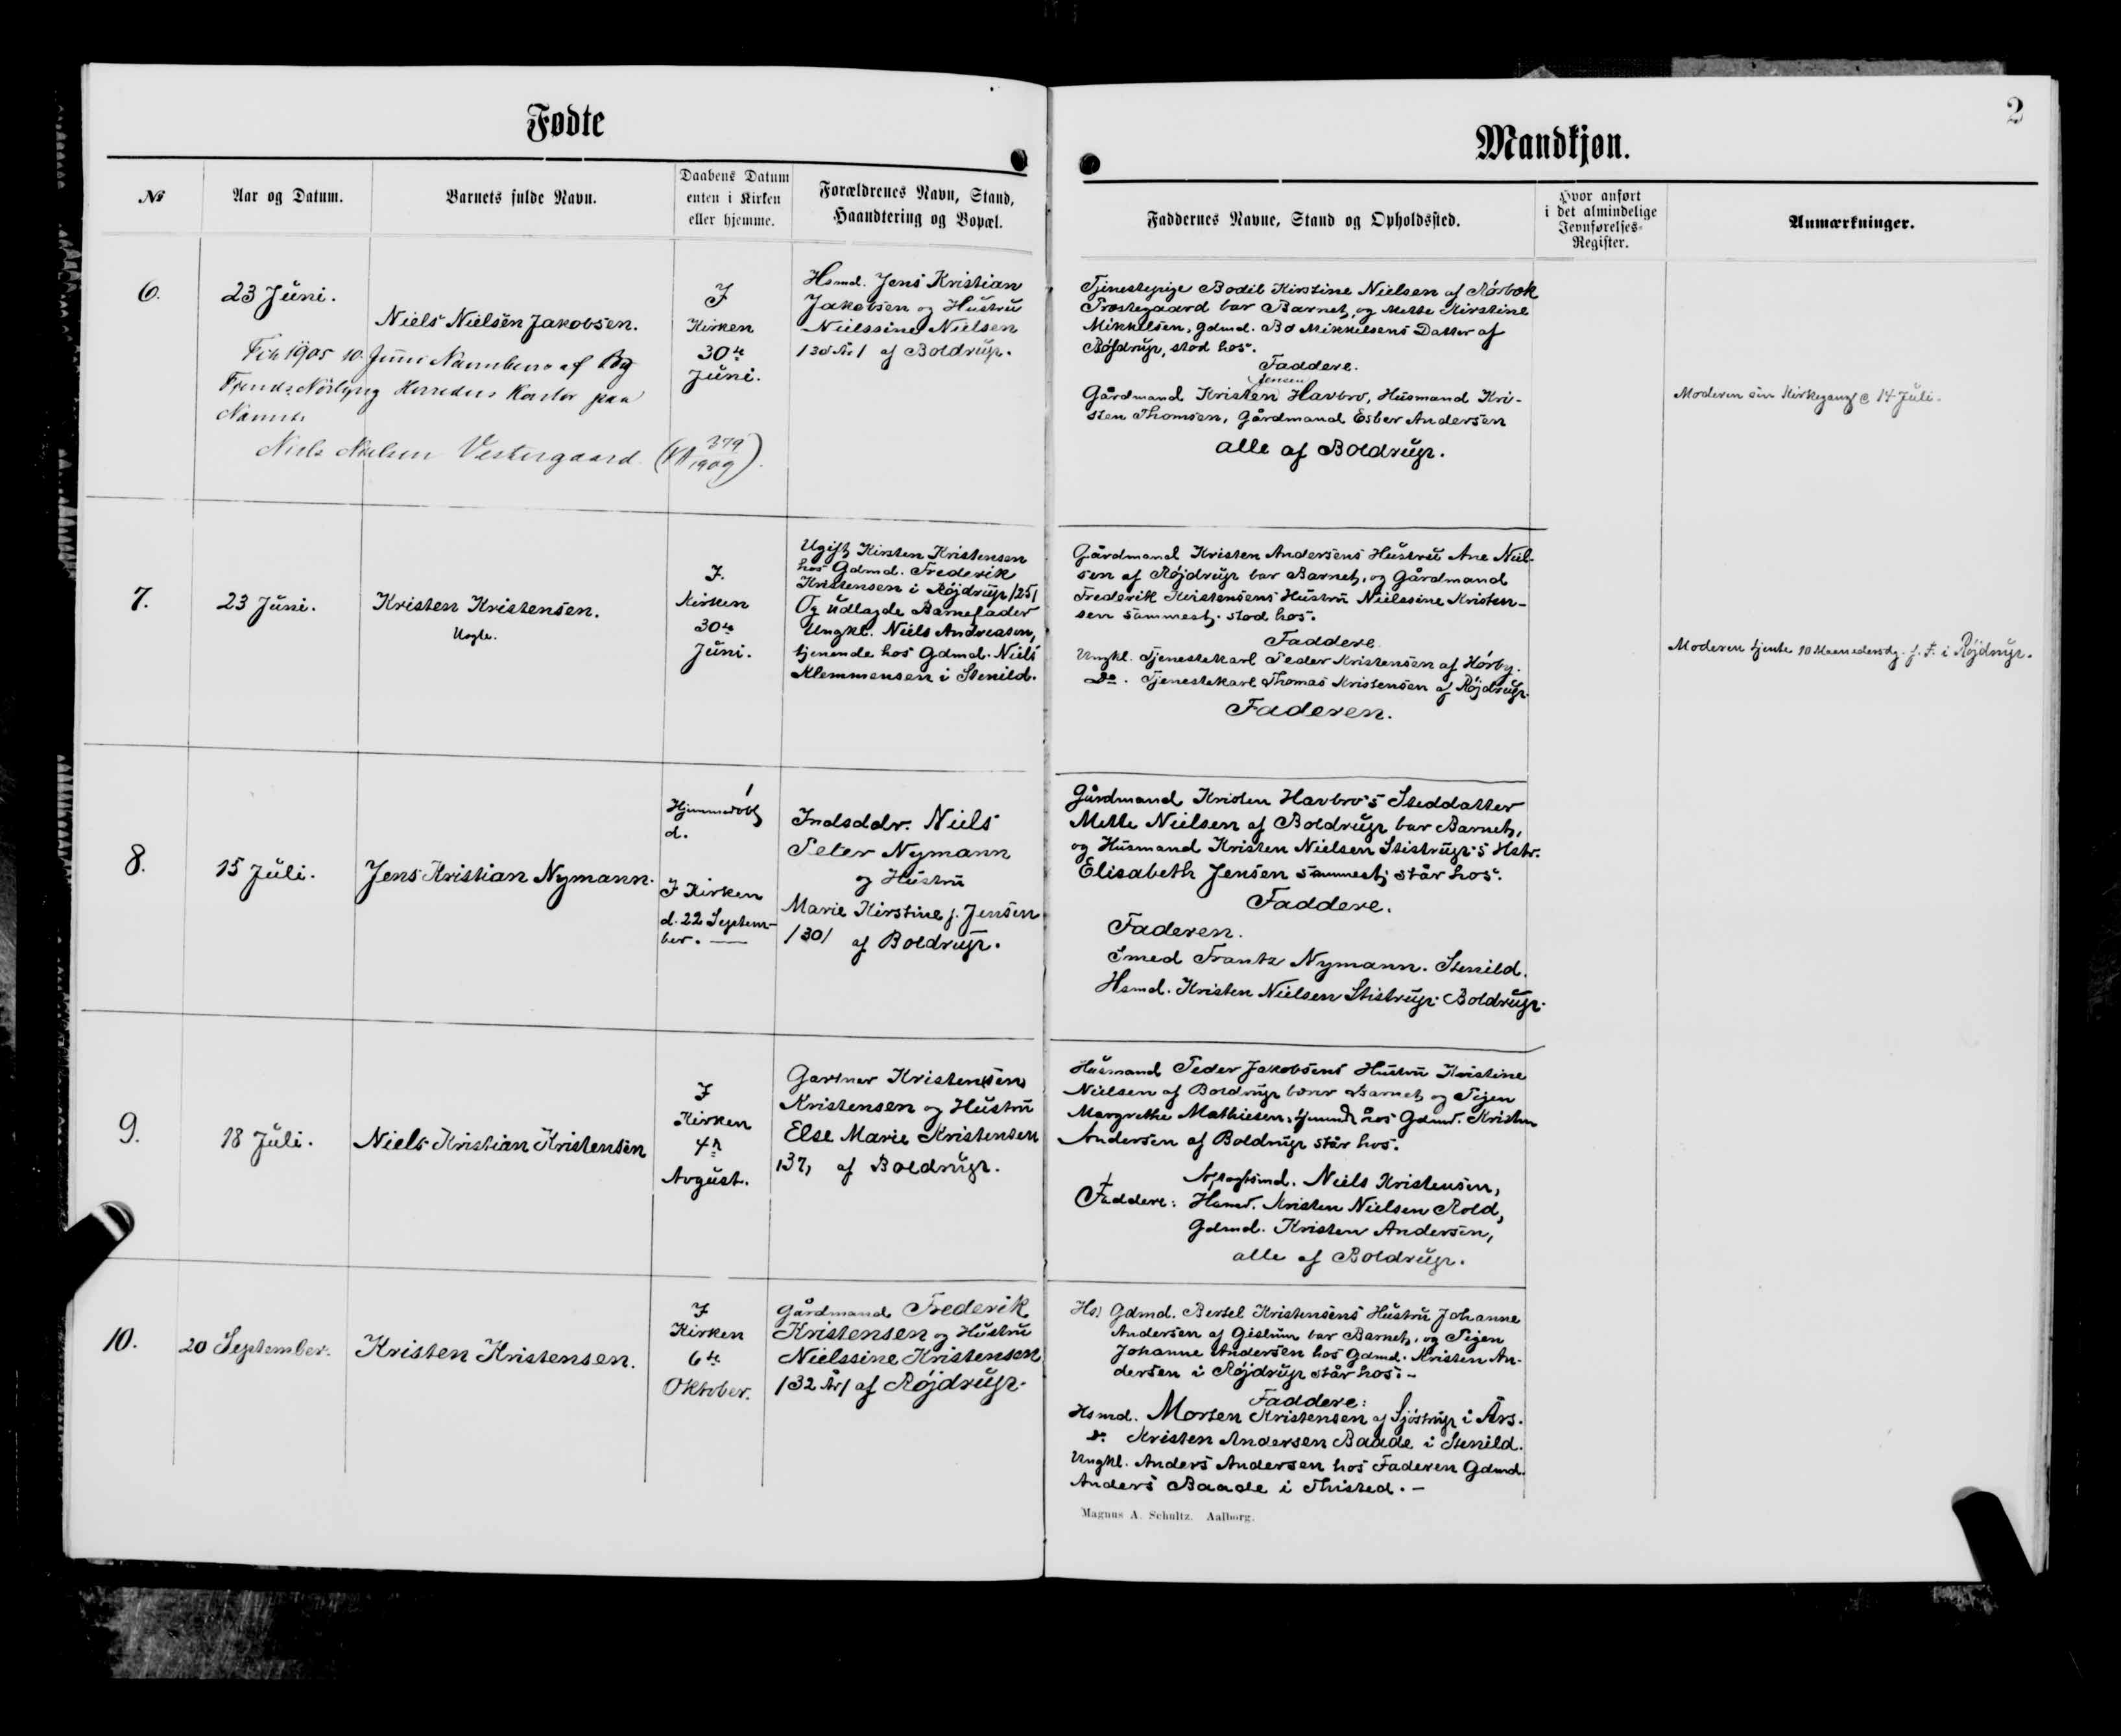 2
Fødte
Mandkjøn.
№
Aar og Datum.
Barnets fulde Navn.
Daabens Datum
enten i Kirken
eller hjemme.
Forældrenes Navn, Stand,
Haandtering og Bopæl.
Faddernes Navne, Stand og Opholdssted.
Hvor anført
i det almindelige
Jevnførelses-
Register.
Anmærkninger.
6.
23 Juni.
Niels Nielsen Jakobsen.
Fik 1905 10. Juni Navnebevis af
Herreders Kontor paa
Navnet
Niels Nielsen Vestergaard (379/1909).
I
Kirken
30te
Juni.
Hsmd. Jens Kristian
Jakobsen og Hustru
Nielssine Nielsen
af Boldrup.
Tjenestepige Bodil Kirstine Nielsen af Rørbæk
Præstegaard bar Barnet, og Mette Kirstine
Mikkelsen, Gdmd. Bo Mikkelsens Datter af
Røjdrup, stod hos.
Faddere.
Jensen
Gårdmand Kristen Havbro, Husmand Kri-
sten Thomsen, Gårdmand Esber Andersen
alle af Boldrup.
Moderen sin Kirkegang 14 Juli.
7.
23 Juni.
Kristen Kristensen.
Uægte.
I.
Kirken
30te
Juni.
Ugift Kirsten Kristensen
hos Gdmd. Frederik
Kristensen i Røjdrup /25/
Og udlagde Barnefader
Ungkl. Niels Andreasen,
tjenende hos Gdmd. Niels
Klemmensen i Stenild.
Gårdmand Kristen Andersens Hustru Ane Niel-
sen af Røjdrup bar Barnet, og Gårdmand
Frederik Kristensens Hustru Nielssine Kristen-
sen sammest. stod hos.
Faddere.
Ungkl. Tjenestekarl Peder Kristensen af Hørby.
Do. Tjenestekarl Thomas Kristensen af Røjdrup.
Faderen.
Moderen tjente 10 Maanedersdg. f. F. i Røjdrup.
8.
15 Juli.
Jens Kristian Nymann.
Hjemmedøbt
d.
I Kirken
d. 22 Septem-
ber.
Indsddr. Niels
Peter Nymann
og Hustru
Marie Kirstine f. Jensen
/30/ af Boldrup.
Gårdmand Kristen Havbro's Steddatter
Mette Nielsen af Boldrup bar Barnet,
og Husmand Kristen Nielsen Stistrup's Hstr.
Elisabeth Jensen sammest. står hos.
Faddere.
Faderen.
Smed Frantz Nymann. Stenild.
Hsmd. Kristen Nielsen Stistrup. Boldrup.
9.
18 Juli.
Niels Kristian Kristensen
I
Kirken
4de
Avgust.
Gartner Kristen
Kristensen og Hustru
Else Marie Kristensen
/37/ af Boldrup.
Husmand Peder Jakobsens Hustru Kristine
Nielsen af Boldrup bærer Barnet og Pigen
Margrethe Mathiesen, tjenende hos Gdmd. Kristen
Andersen af Boldrup står hos.
Aftægtsmd. Niels Kristensen,
Faddere: Hsmd. Kristen Nielsen Rold,
Gdmd. Kristen Andersen,
alle af Boldrup.
10.
20 September.
Kristen Kristensen.
I
Kirken
6te
Oktober.
Gårdmand Frederik
Kristensen og Hustru
Nielssine Kristensen
/32 År/ af Røjdrup.
Gdmd. Bertel Kristensens Hustru Johanne
Andersen af Gislum bar Barnet, og Pigen
Johanne Andersen hos Gdmd. Kristen An-
dersen i Røjdrup står hos. -
Faddere:
Hsmd. Morten Kristensen af Sjøstrup i Års.
Kristen Andersen Baade i Stenild.
Ungkl. Anders Andersen hos Faderen Gdmd.
Anders Baade i Thisted. -
Magnus A. Schultz. Aalborg.